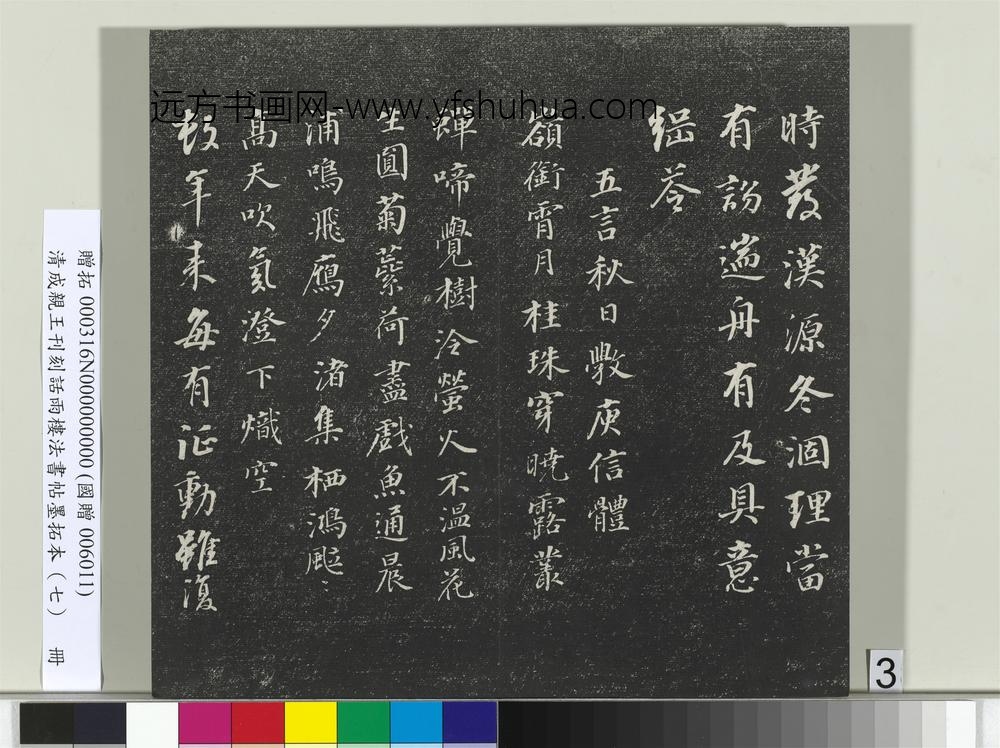 時發漢源冬涸理當
有訪遄舟有及具意
繼答
五言秋日斆庾信體
嶺銜霄月桂珠穿曉露叢
蟬啼覺樹冷螢火不溫風花
生圓菊蘂荷盡戲魚通晨
浦鳴飛鴈夕渚集栖鴻颸〻
高天吹氛澄下熾空
年來每有征動雖復
远方书画网-www.yfshuhua.com
贈拓 000316N000000000(國贈 006011)
清成親王刊刻話雨樓法書帖墨拓本(七) 冊
3